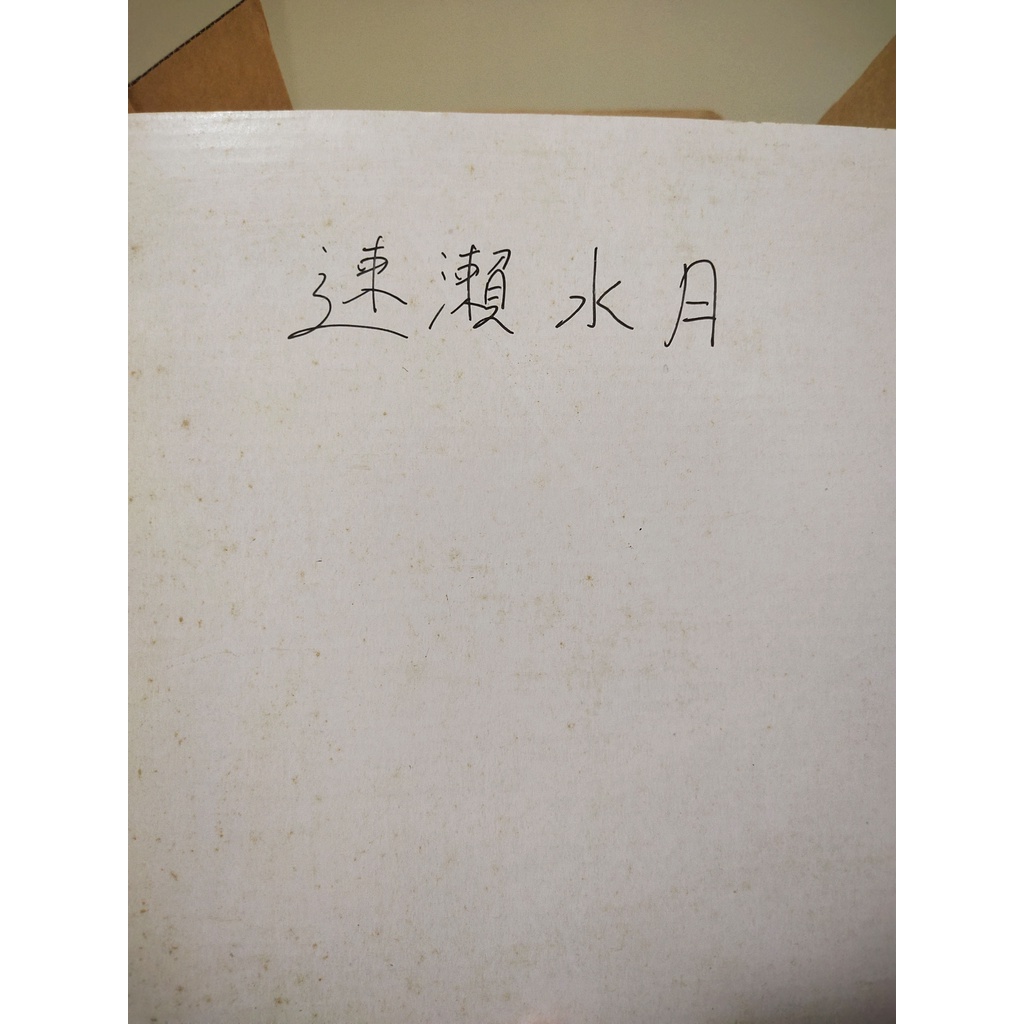 速瀨水月